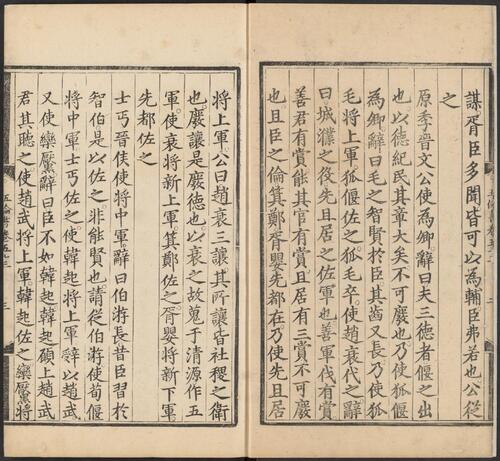 謀胥臣多聞皆可以為輔臣弗若也公從
之
原季晉文公使為卿辭曰夫三德者偃之出
也以德紀民其章大矣不可廢也乃使狐偃
為卿辭曰毛之智賢於臣其齒又長乃使狐
毛將上軍狐偃佐之狐毛卒使趙衰代之辭
曰城濮之役先且居之佐軍也善軍伐有賞
善君有賞能其官有賞且居有三賞不可廢
也且臣之倫箕鄭胥嬰先都在乃使先且居
將上軍公曰趙衰三讓其所讓皆社稷之衛
也廢讓是廢德也以衰之故蒐于清源作五
軍使衰將新上軍箕鄭佐之胥嬰將新下軍
先都佐之
士丐晉侯使將中軍辭曰伯游長昔臣習於
智伯是以佐之非能賢也請從伯游使荀偃
將中軍士丐佐之使韓起將上軍辭以趙武
又使欒黶辭曰臣不如韓起韓起願上趙武
君其聽之使趙武將上軍韓起佐之欒黶將
五倫書卷五十三 三